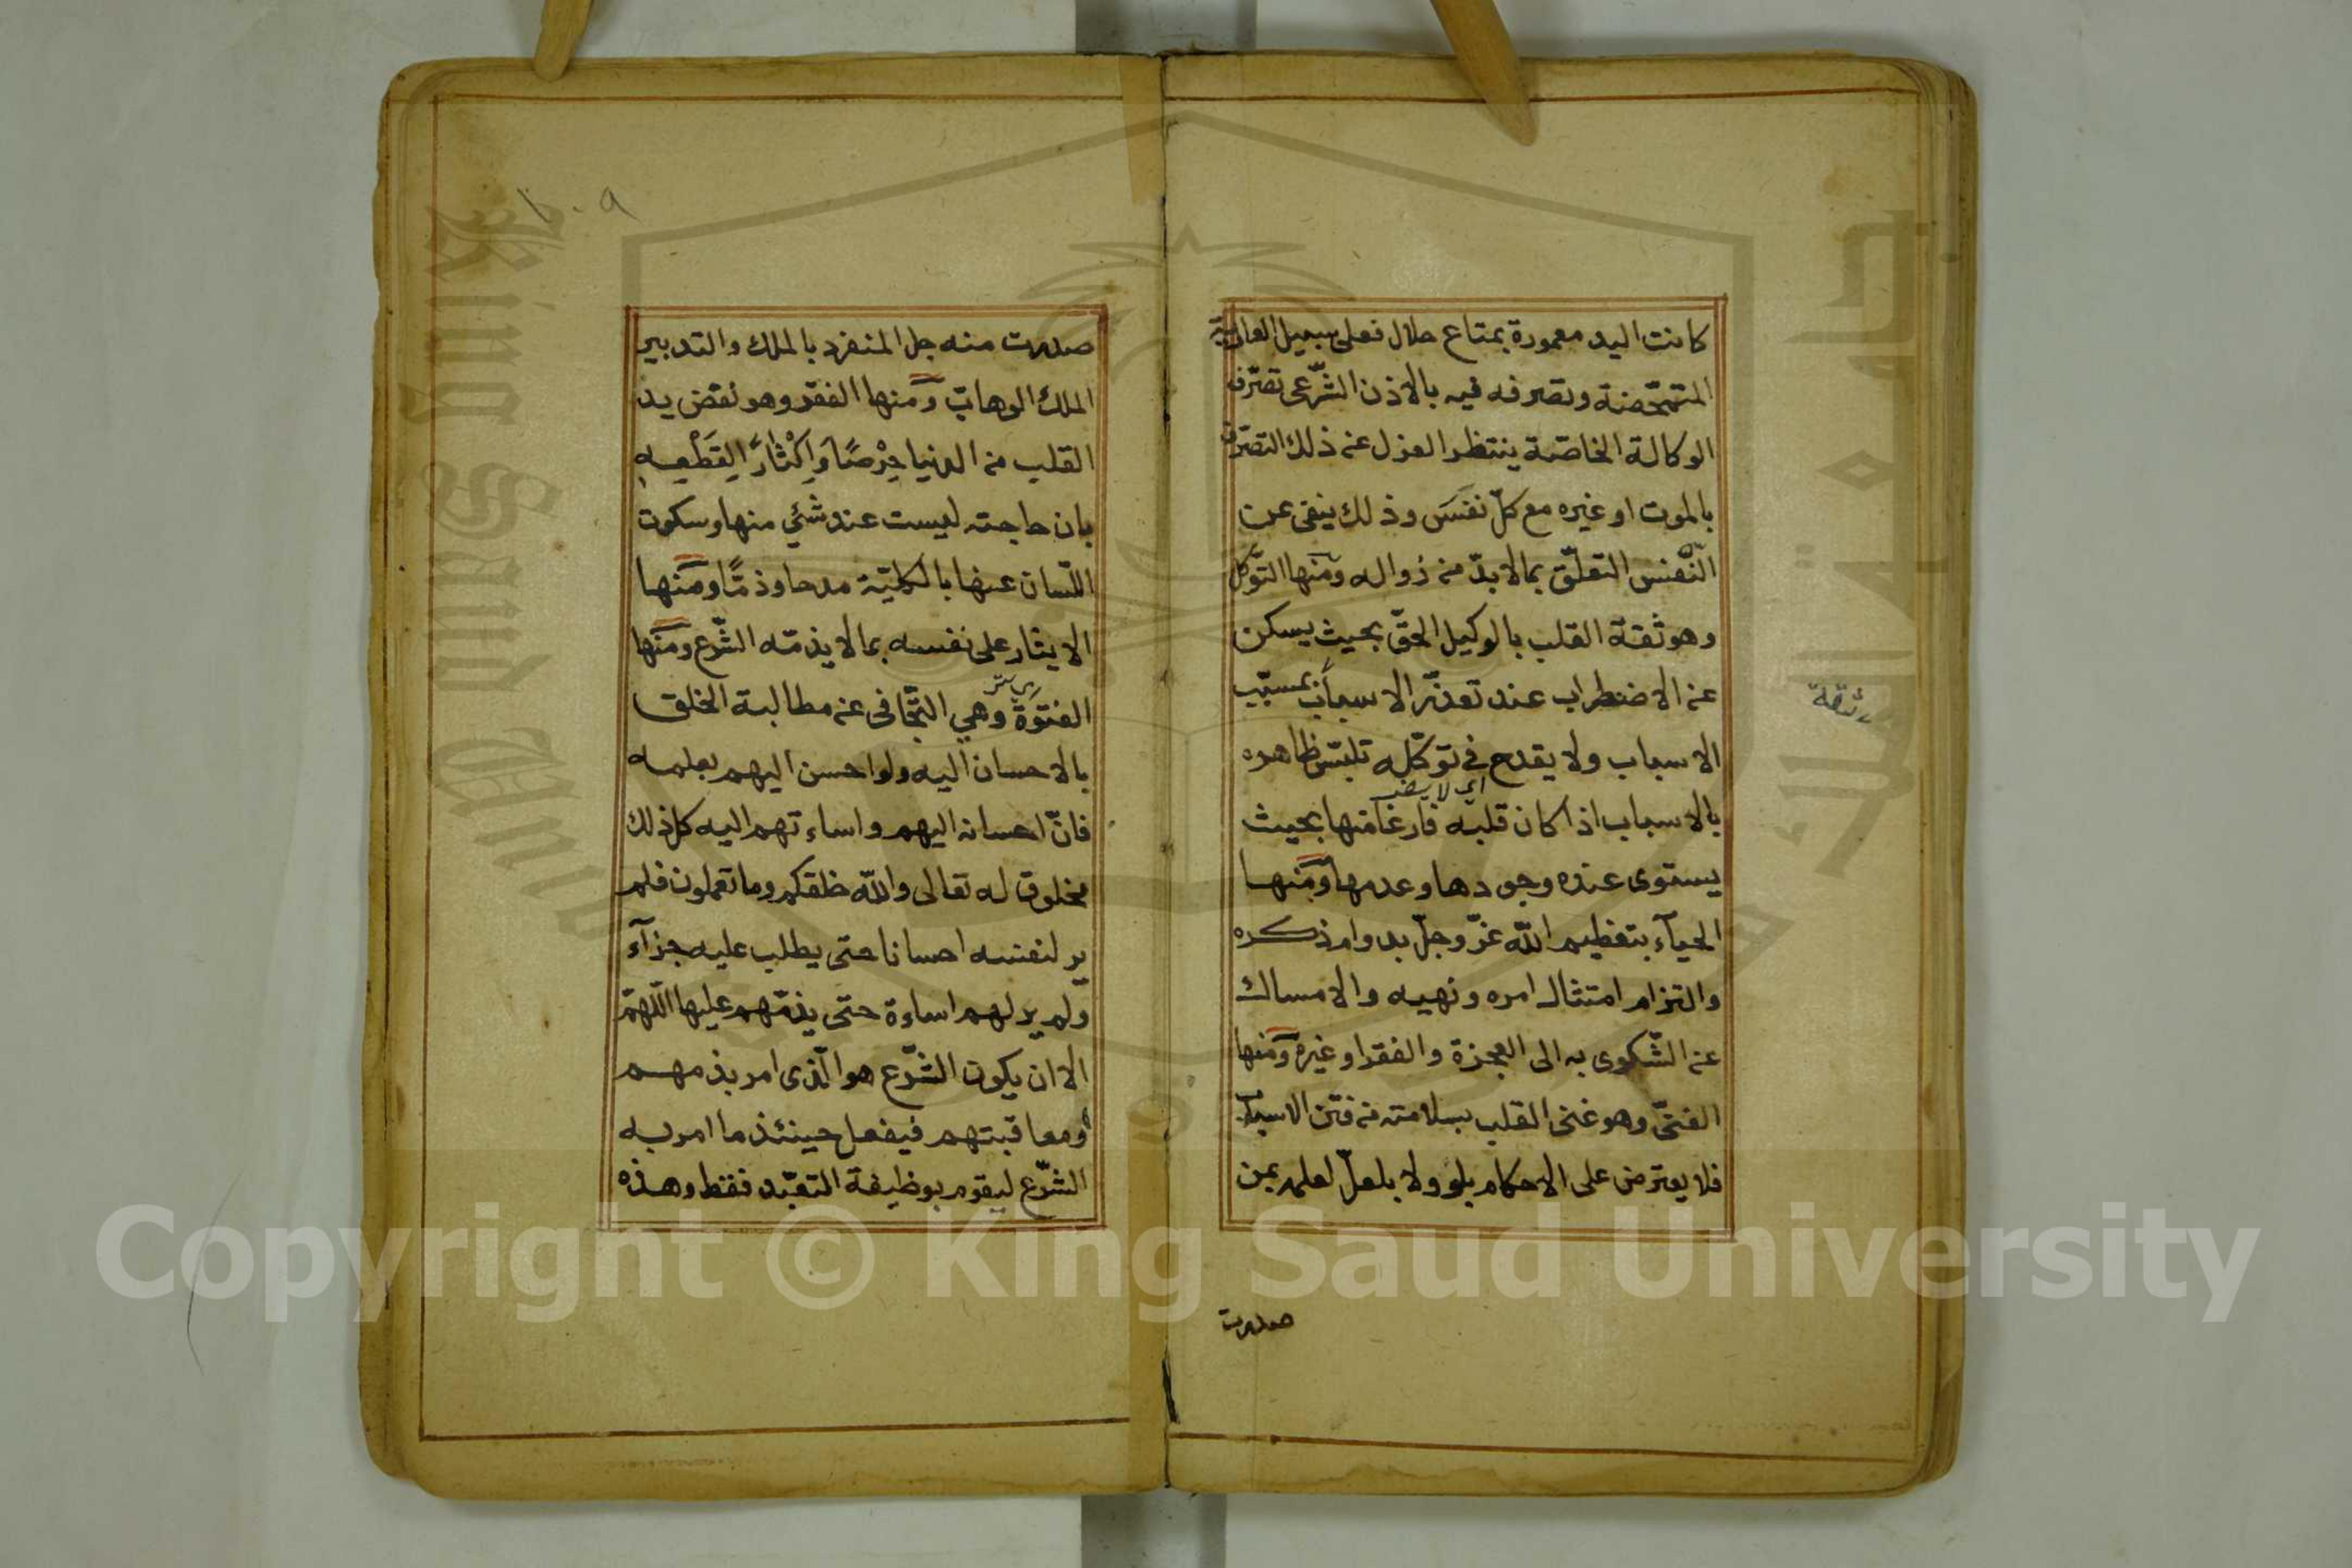 كانت اليد معمورة بمتاع حلال فعلى سبيل العارية
المتمحّضة وتصرفه فيه بالاذن الشّرعى تصرّف
الوكالة الخاصّة ينتظر العزل عن ذلك التصرّف
بالموت او غيره مع كلّ نفس وذلك ينفى عن
النّفس التعلّق بمالابدّ من زواله ومنها التوكّل
وهو ثقة القلب بالوكيل الحقّ بحيث يسكن
عن الاضطراب عند تعذّر الاسباب بمسبّب
الاسباب ولا يقدح فى توكّله تلبّس ظاهره
اى لا يضر
بالاسباب اذا كان قلبه فارغا منها بحيث
يستوى عنده وجودها وعدمها ومنها
الحيآء بتعظيم اللّه عزّ وجلّ بدوام ذكره
والتزام امتثال امره ونهيه والامساك
عن الشّكوى به الى العجزة والفقراء وغيره ومنها
الغنىّ وهو غنى القلب بسلامته من فتن الاسباب
فلا يعترض على الاحكام بلو ولا بلعلّ لعلمه بمن
صدرت
ثقة
صدرت منه جل المنفرد بالملك والتدبير
الملك الوهاب ومنها الفقر وهو نفض يد
القلب من الدنيا حِرْصًا وَاِكْثارًا لِقَطْعِهِ
بان حاجته ليست عند شئ منها وسكوت
اللّسان عنها بالكليّة مدحا وذمّا ومنها
الايثار على نفسه بما لا يذمّه الشّرع ومنها
الفتوّة وهي التّجافى عن مطالبة الخلق
بالاحسان اليه ولو احسن اليهم بعلمه
فانّ احسانه اليهم واساءتهم اليه كل ذلك
مخلوق له تعالى واللّه خلقكم وما تعملون فلم
ير لنفسه احسانا حتى يطلب عليه جزآء
ولم ير لهم اساءة حتى يذمّهم عليها اللّهمّ
الا ان يكون الشّرع هو الّذى امر بذمهم
ومعاقبتهم فيفعل حينئذ ما امر به
الشّرع ليقوم بوظيفة التعبّد فقط وهذه
Copyright © King Saud University
King Saud University